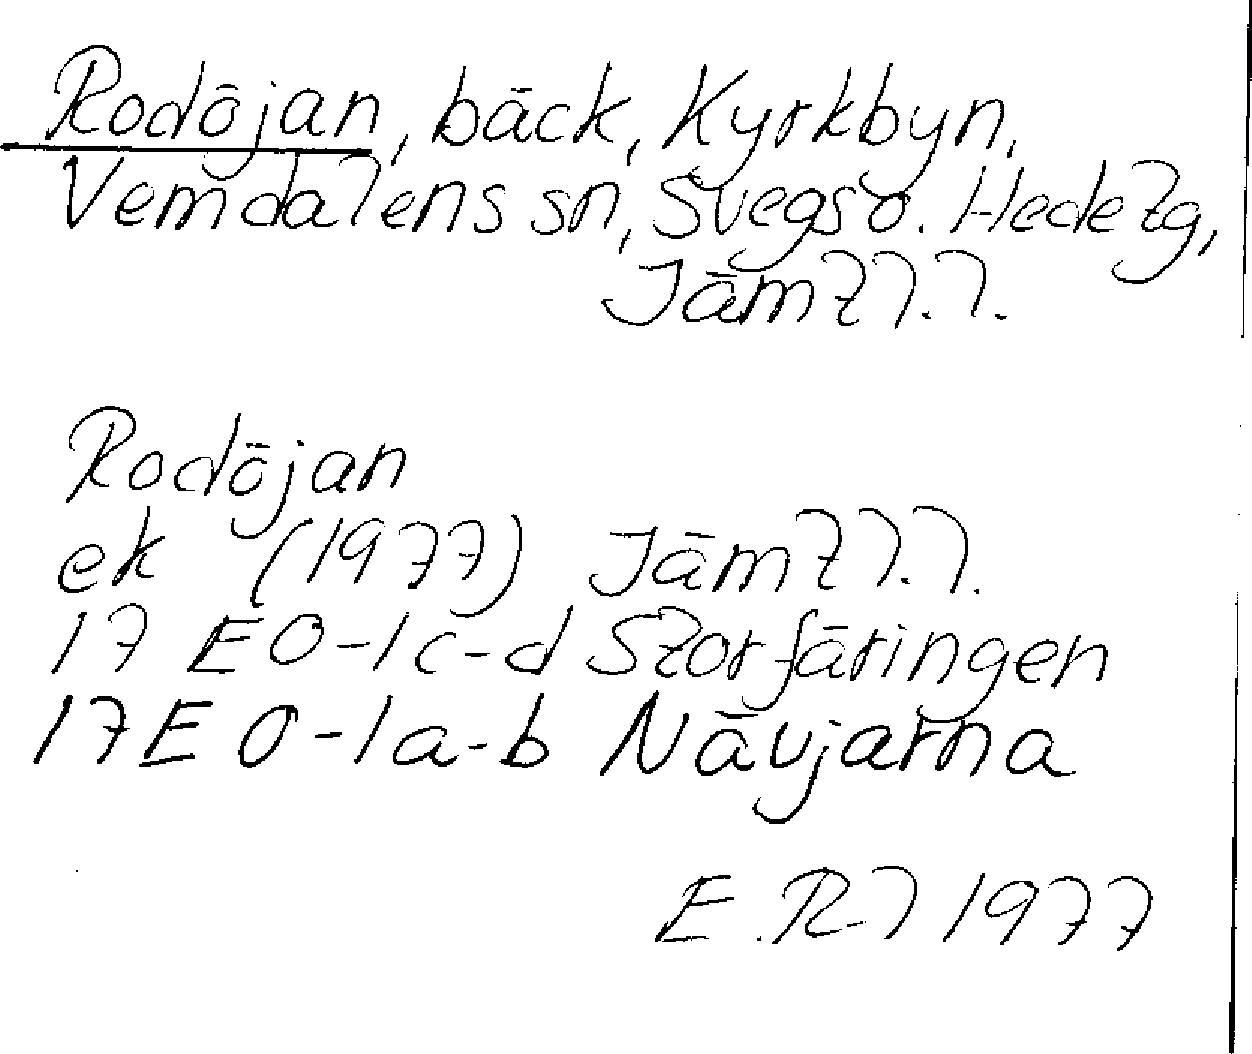 Rodöjan, bäck, Kyrkbyn,
Vemdalens sn, Svegs o. Hede tg,
Jämtl. l.
Rodöjan
ek (1977) Jämtl. l.
17 E 0-1c-d Storfäringen
17E 0-1a-b Nävjarna
E. R-l 1977